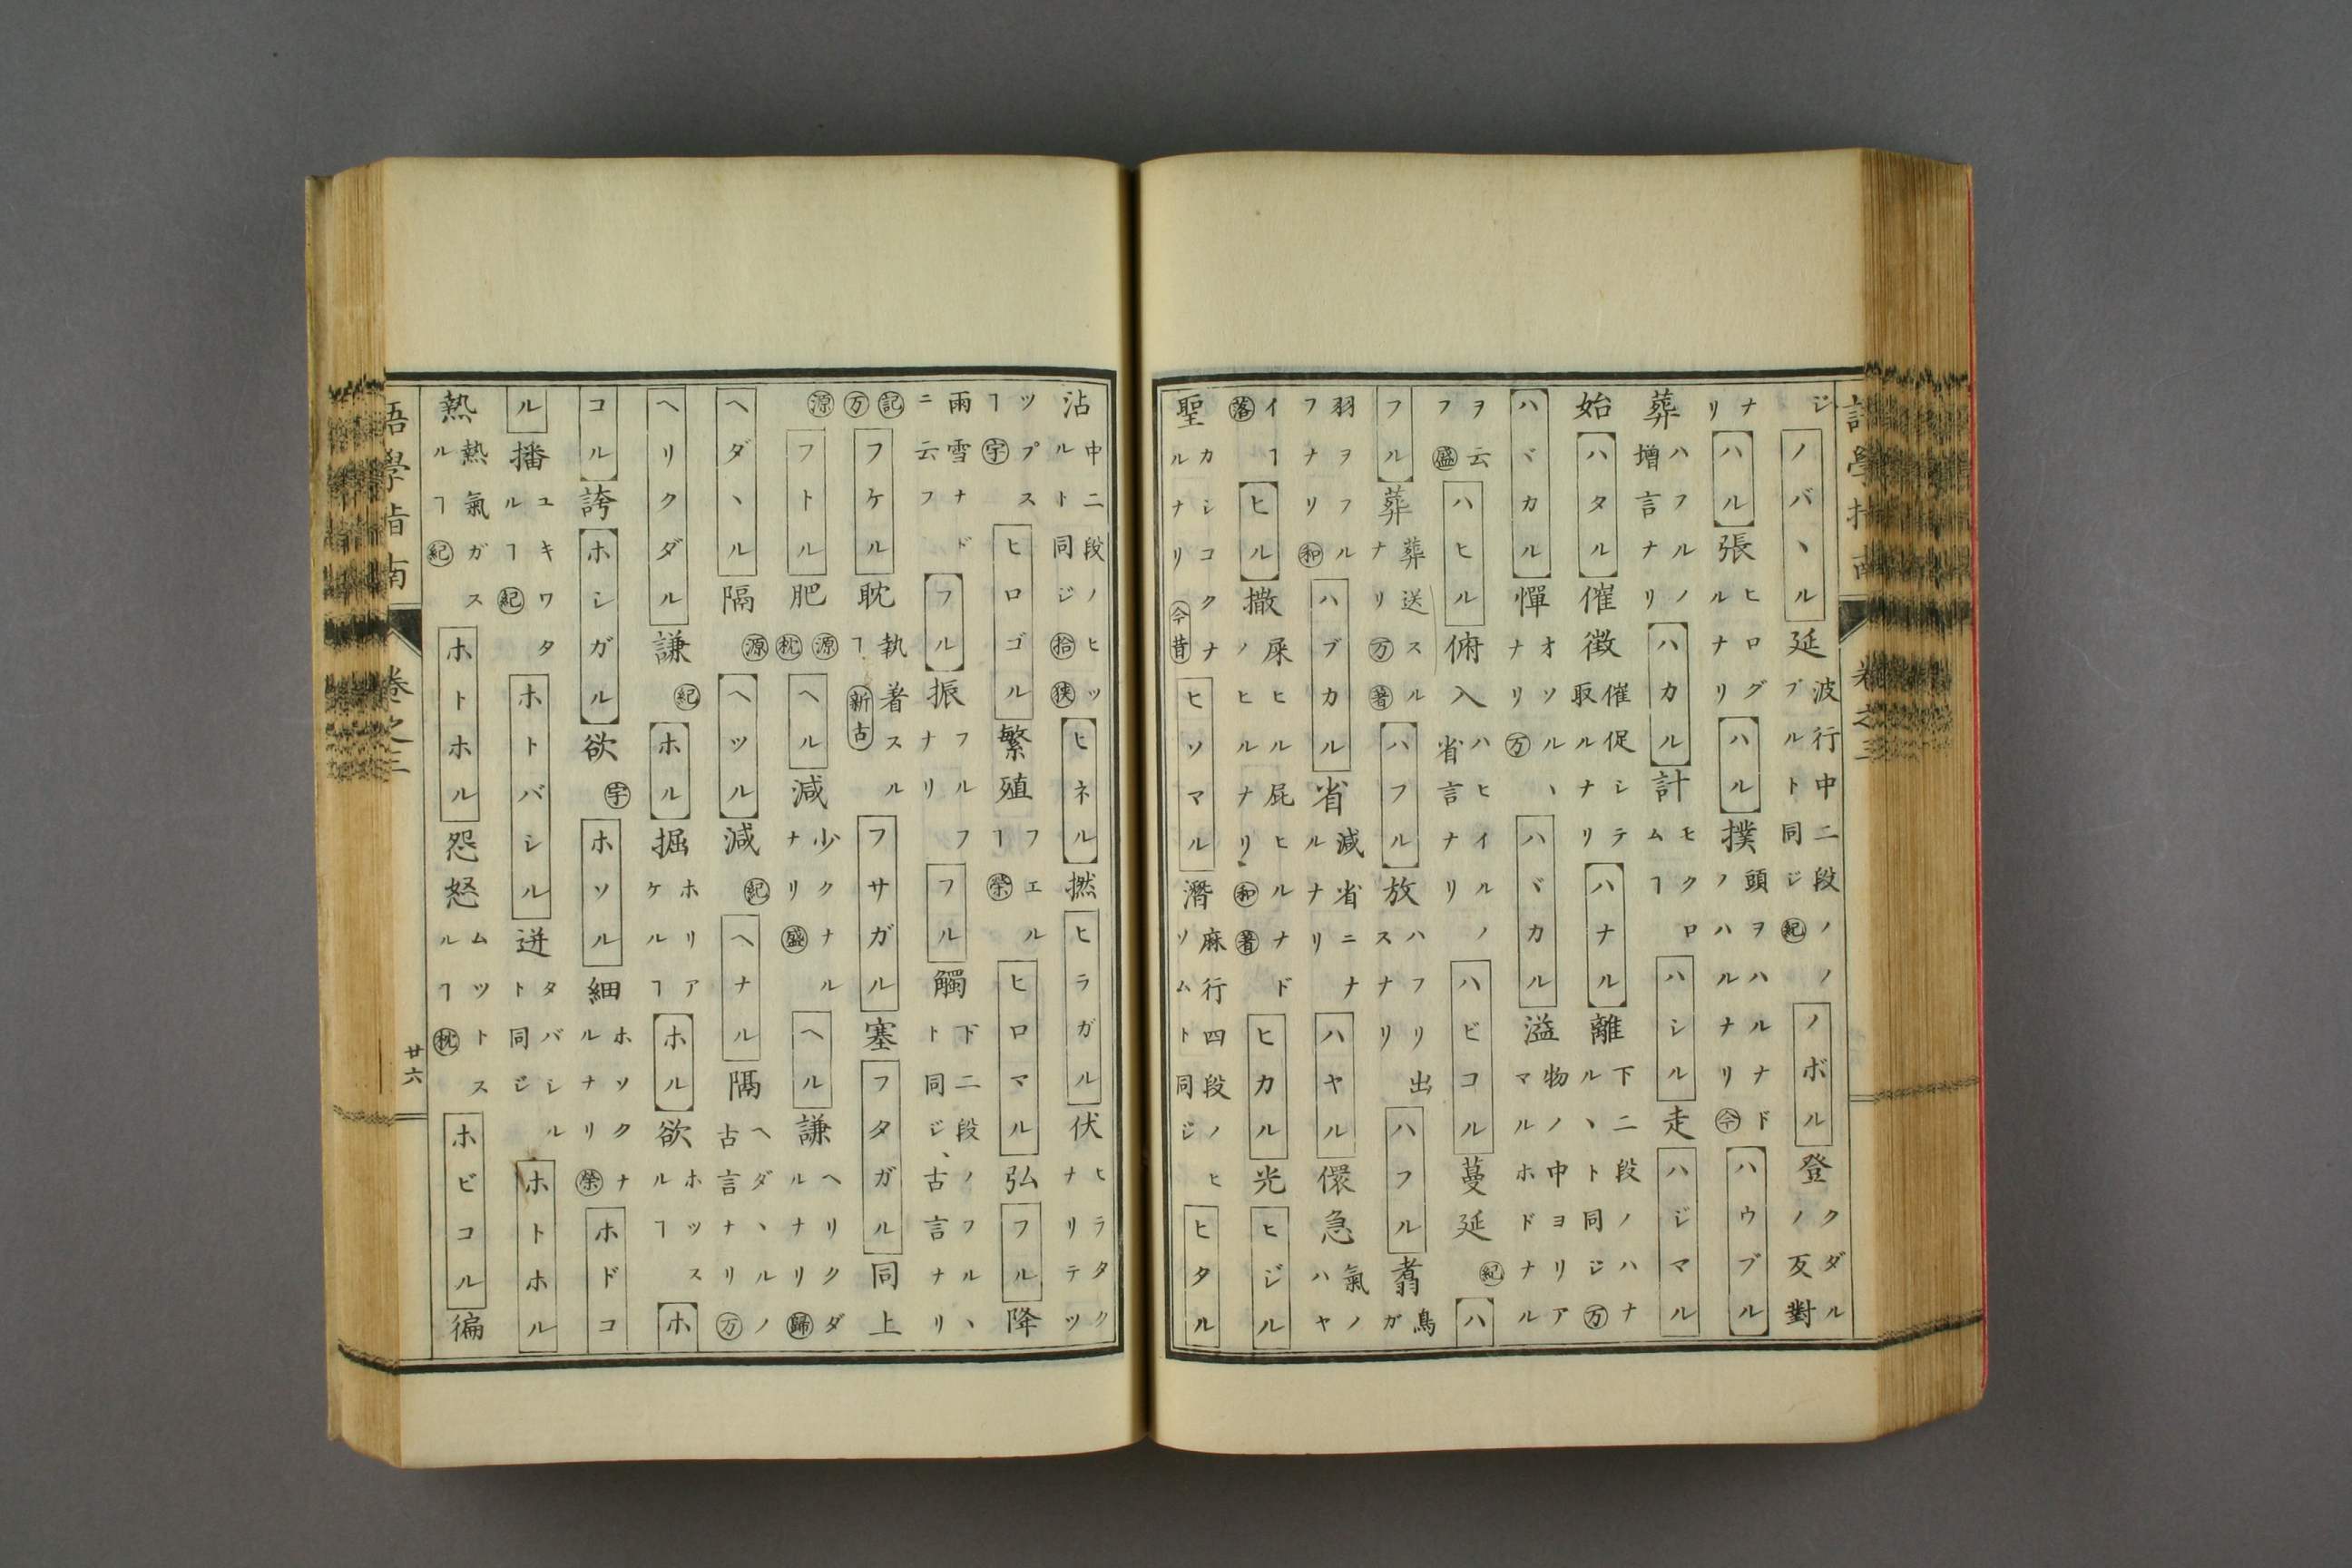 ジノバヽル延波行中二段ノノブルト同ジ紀ノボル登クダルノ反對
ナリハル張ヒログルナリハル撲頭ヲハルナドノハルナリ今ハウブル
葬ハフルノ増言ナリハカル計モクロムヿハシル走ハジマル
始ハタル催徴催促シテ取ルナリハナル離下二段ノハナルヽト同ジ万
ハヾカル憚オソルヽナリ万ハヾカル溢物ノ中ヨリアマルホドナル
ヲ云フ盛ハヒル俯入ハヒイルノ省言ナリハビコル蔓延紀ハ
フル葬葬送スルナリ万著ハフル放ハフリ出スナリハフル翥鳥ガ
羽ヲフルフナリ和ハブカル省減省ニナルナリハヤル儇急氣ノハヤ
イヿ落ヒル撒屎ヒル屁ヒルナドノヒルナリ和著ヒカル光ヒジル
聖カシコクナルナリ今昔ヒソマル潛麻行四段ノヒソムト同ジヒタル
沾中二段ノヒツルト同ジ拾狭ヒネル撚ヒラガル伏ヒラタクナリテツ
ツプスヿ宇ヒロゴル繁殖フエルヿ榮ヒロマル弘フル降
雨雪ナドニ云フフル振フルフナリフル觸下二段ノフルヽト同ジ、古言ナリ
記万フケル耽執着スルヿ新古フサガル塞フタガル同上
源フトル肥源枕源ヘル減少クナルナリ盛ヘル謙ヘリクダルナリ歸
ヘダヽル隔ヘツル減紀ヘナル隔ヘダヽルノ古言ナリ万
ヘリクダル謙紀ホル掘ホリアケルヿホル欲ホツスルヿホ
コル誇ホシガル欲宇ホソル細ホソクナルナリ榮ホドコ
ル播ユキワタルヿ紀ホトバシル迸タバシルト同ジホトホル
熱熱氣ガスルヿ紀ホトホル怨怒ムツトスルヿ枕ホビコル徧
語學指南 卷之三 廿六